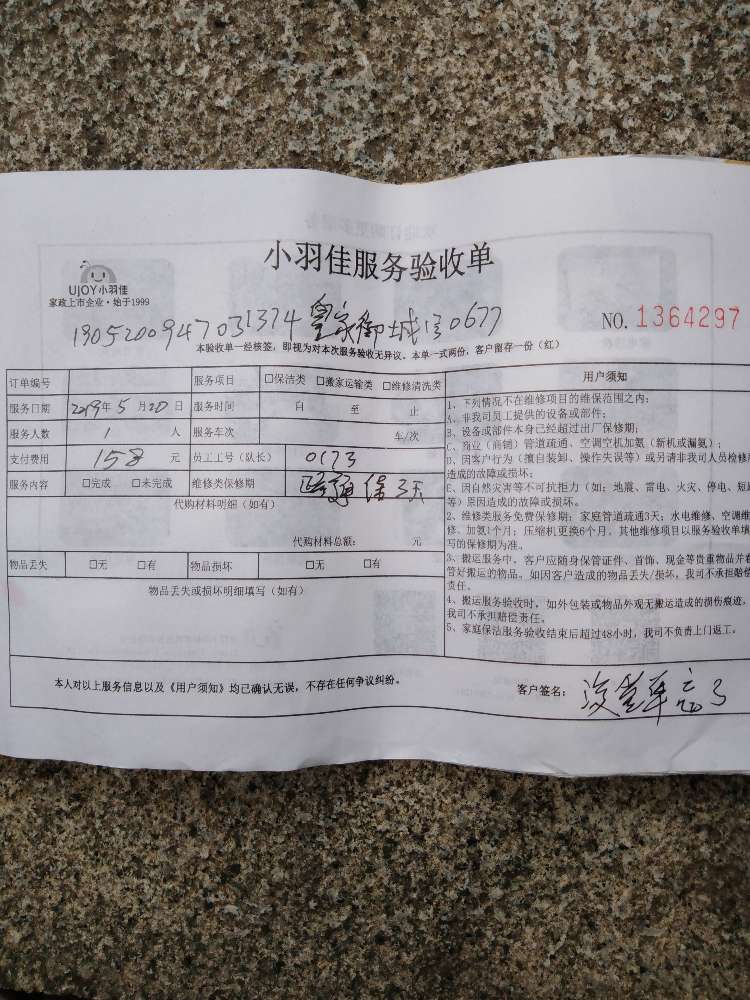 小羽佳服务验收单
UJOY小羽佳
家政上市企业·始于1999
NO. 1364297
1905200947031374皇家御城
本验收单一经核签，即视为对本次服务验收无异议。本单一式两份，客户留存一份（红）
订单编号 服务项目 □保洁类 □搬家运输类 □维修清洗类
服务日期 2019年 5 月 20 日 服务时间 自 至 止
服务人数 1 人 服务车次 车/次
支付费用 158 元 员工工号（队长） 0173
服务内容 □完成 □未完成 维修类保修期 保3天
代购材料明细（如有）
代购材料总额： 元
物品丢失 □无 □有 物品损坏 □无 □有
物品丢失或损坏明细填写（如有）
用户须知
1、下列情况不在维修项目的维保范围之内：
A、非我司员工提供的设备或部件；
B、设备或部件本身已经超过出厂保修期；
C、商业（商铺）管道疏通、空调空机加氨（新机或漏氨）；
D、因客户行为（擅自装卸、操作失误等）或另请非我司人员检修
造成的故障或损坏；
E、因自然灾害等不可抗拒力（如：地震、雷电、火灾、停电、短
等）原因造成的故障或损坏。
2、维修类服务免费保修期：家庭管道疏通3天；水电维修、空调维
修、加氨1个月；压缩机更换6个月。其他维修项目以服务验收单填
写的保修期为准。
3、搬运服务中，客户应随身保管证件、首饰、现金等贵重物品并看
管好搬运的物品，如因客户造成的物品丢失/损坏，我司不承担赔偿
责任。
4、搬运服务验收时，如外包装或物品外观无搬运造成的损伤痕迹，
我司不承担赔偿责任。
5、家庭保洁服务验收结束后超过48小时，我司不负责上门返工。
本人对以上服务信息以及《用户须知》均已确认无误，不存在任何争议纠纷。
客户签名： 没签单忘了